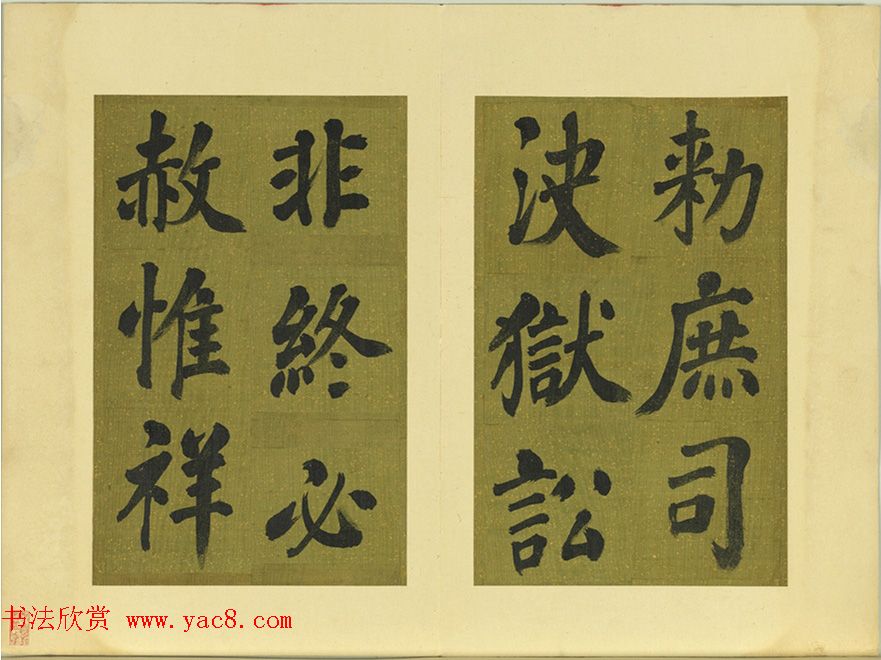 勑庶司
决獄訟
非終必
赦惟祥
书法欣赏 www.yac8.com